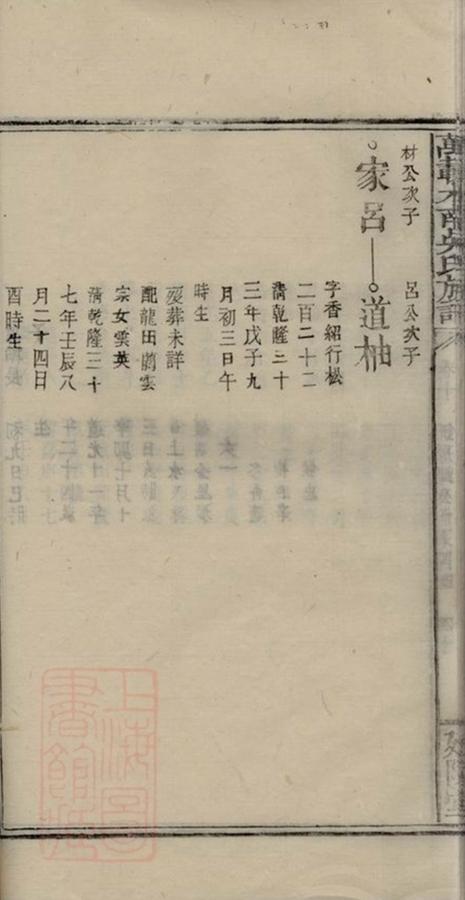 萬載
吳氏族譜
材公次子
家呂
呂公次子
道柚
字香紹行松
二百二十二
清乾隆三十
三年戊子九
月初三日午
時生
歿葬未詳
配龍田藺雲
宗女雲英
清乾隆三十
七年壬辰八
月二十四日
酉時生
上海圖
書館藏